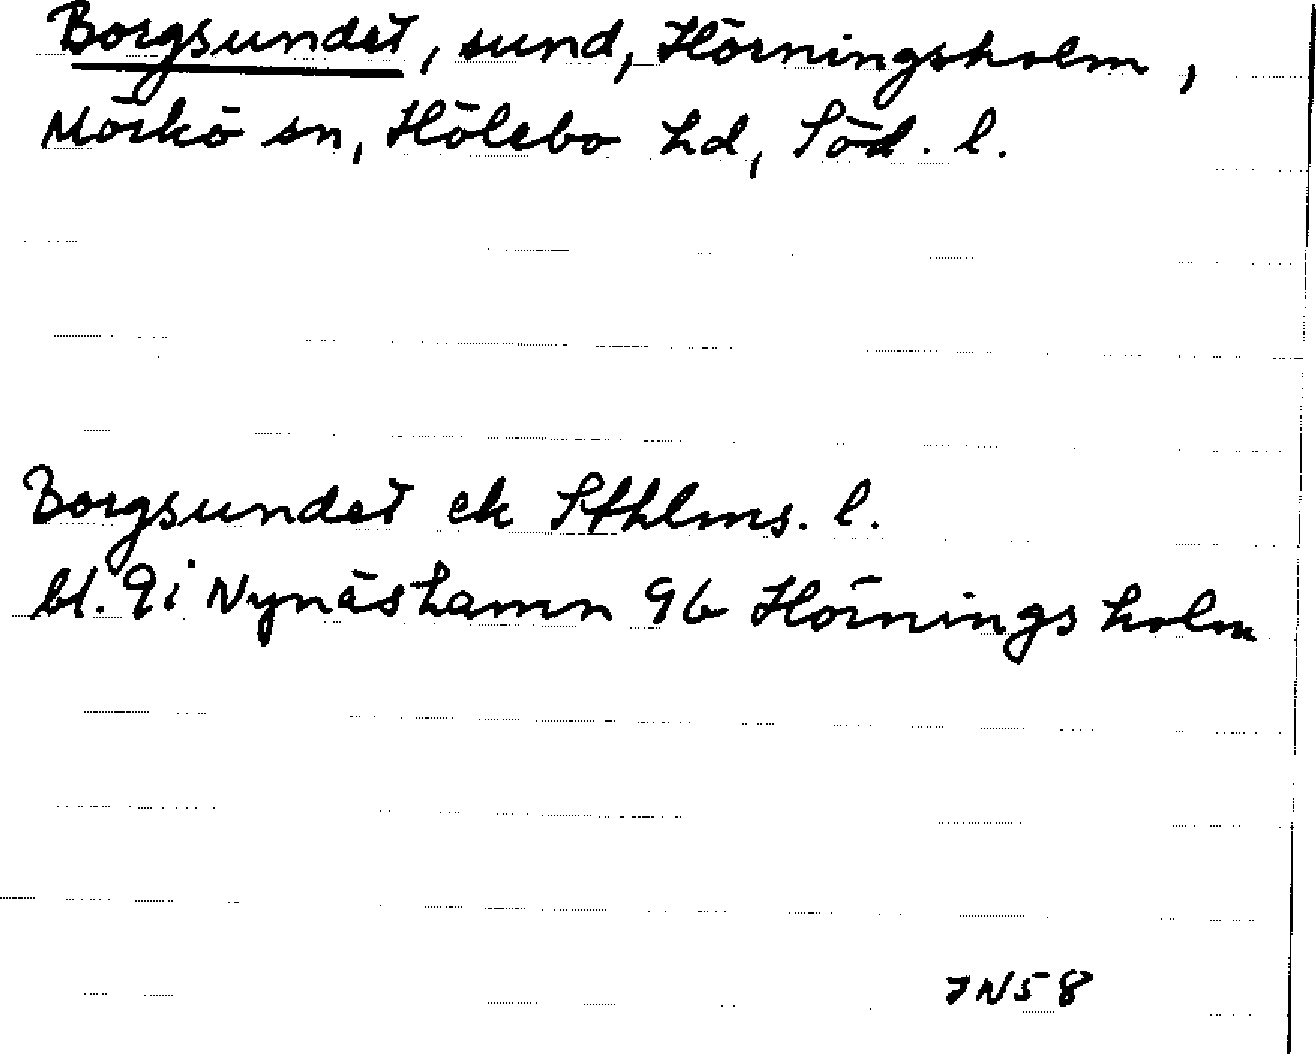 Borgsundet, sund, Hörningsholm,
Mörkö sn, Hölebo hd, Söd. l.
Borgsundet ek Sthlms. l.
bl. 9 i Nynäshamn 96 Hörningsholm
JN58